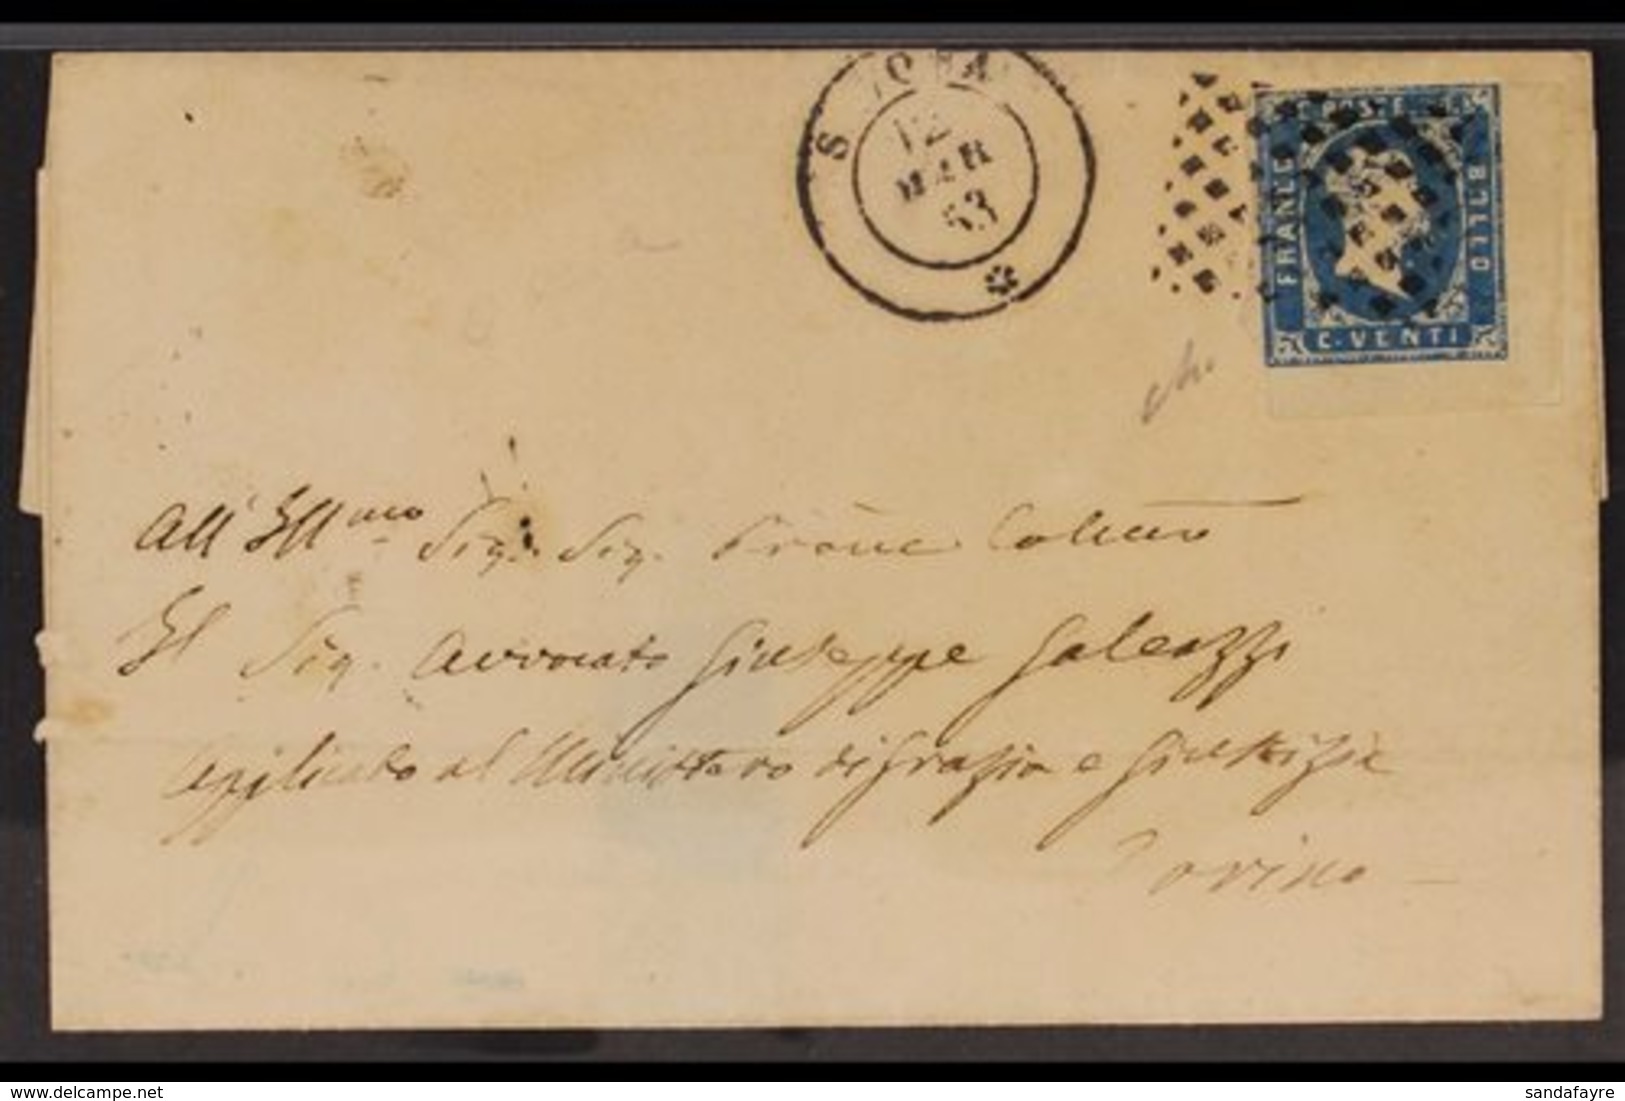 12
MAR
53
POSTE
FRANCO
BOLLO
C. VENTI
All' Ill.mo Sig. Sig.
Il Sig. Avvocato Giuseppe Galeazzi
applicato al Ministero di Grazia e Giustizia
Torino
www.delcampe.net
sandafayre